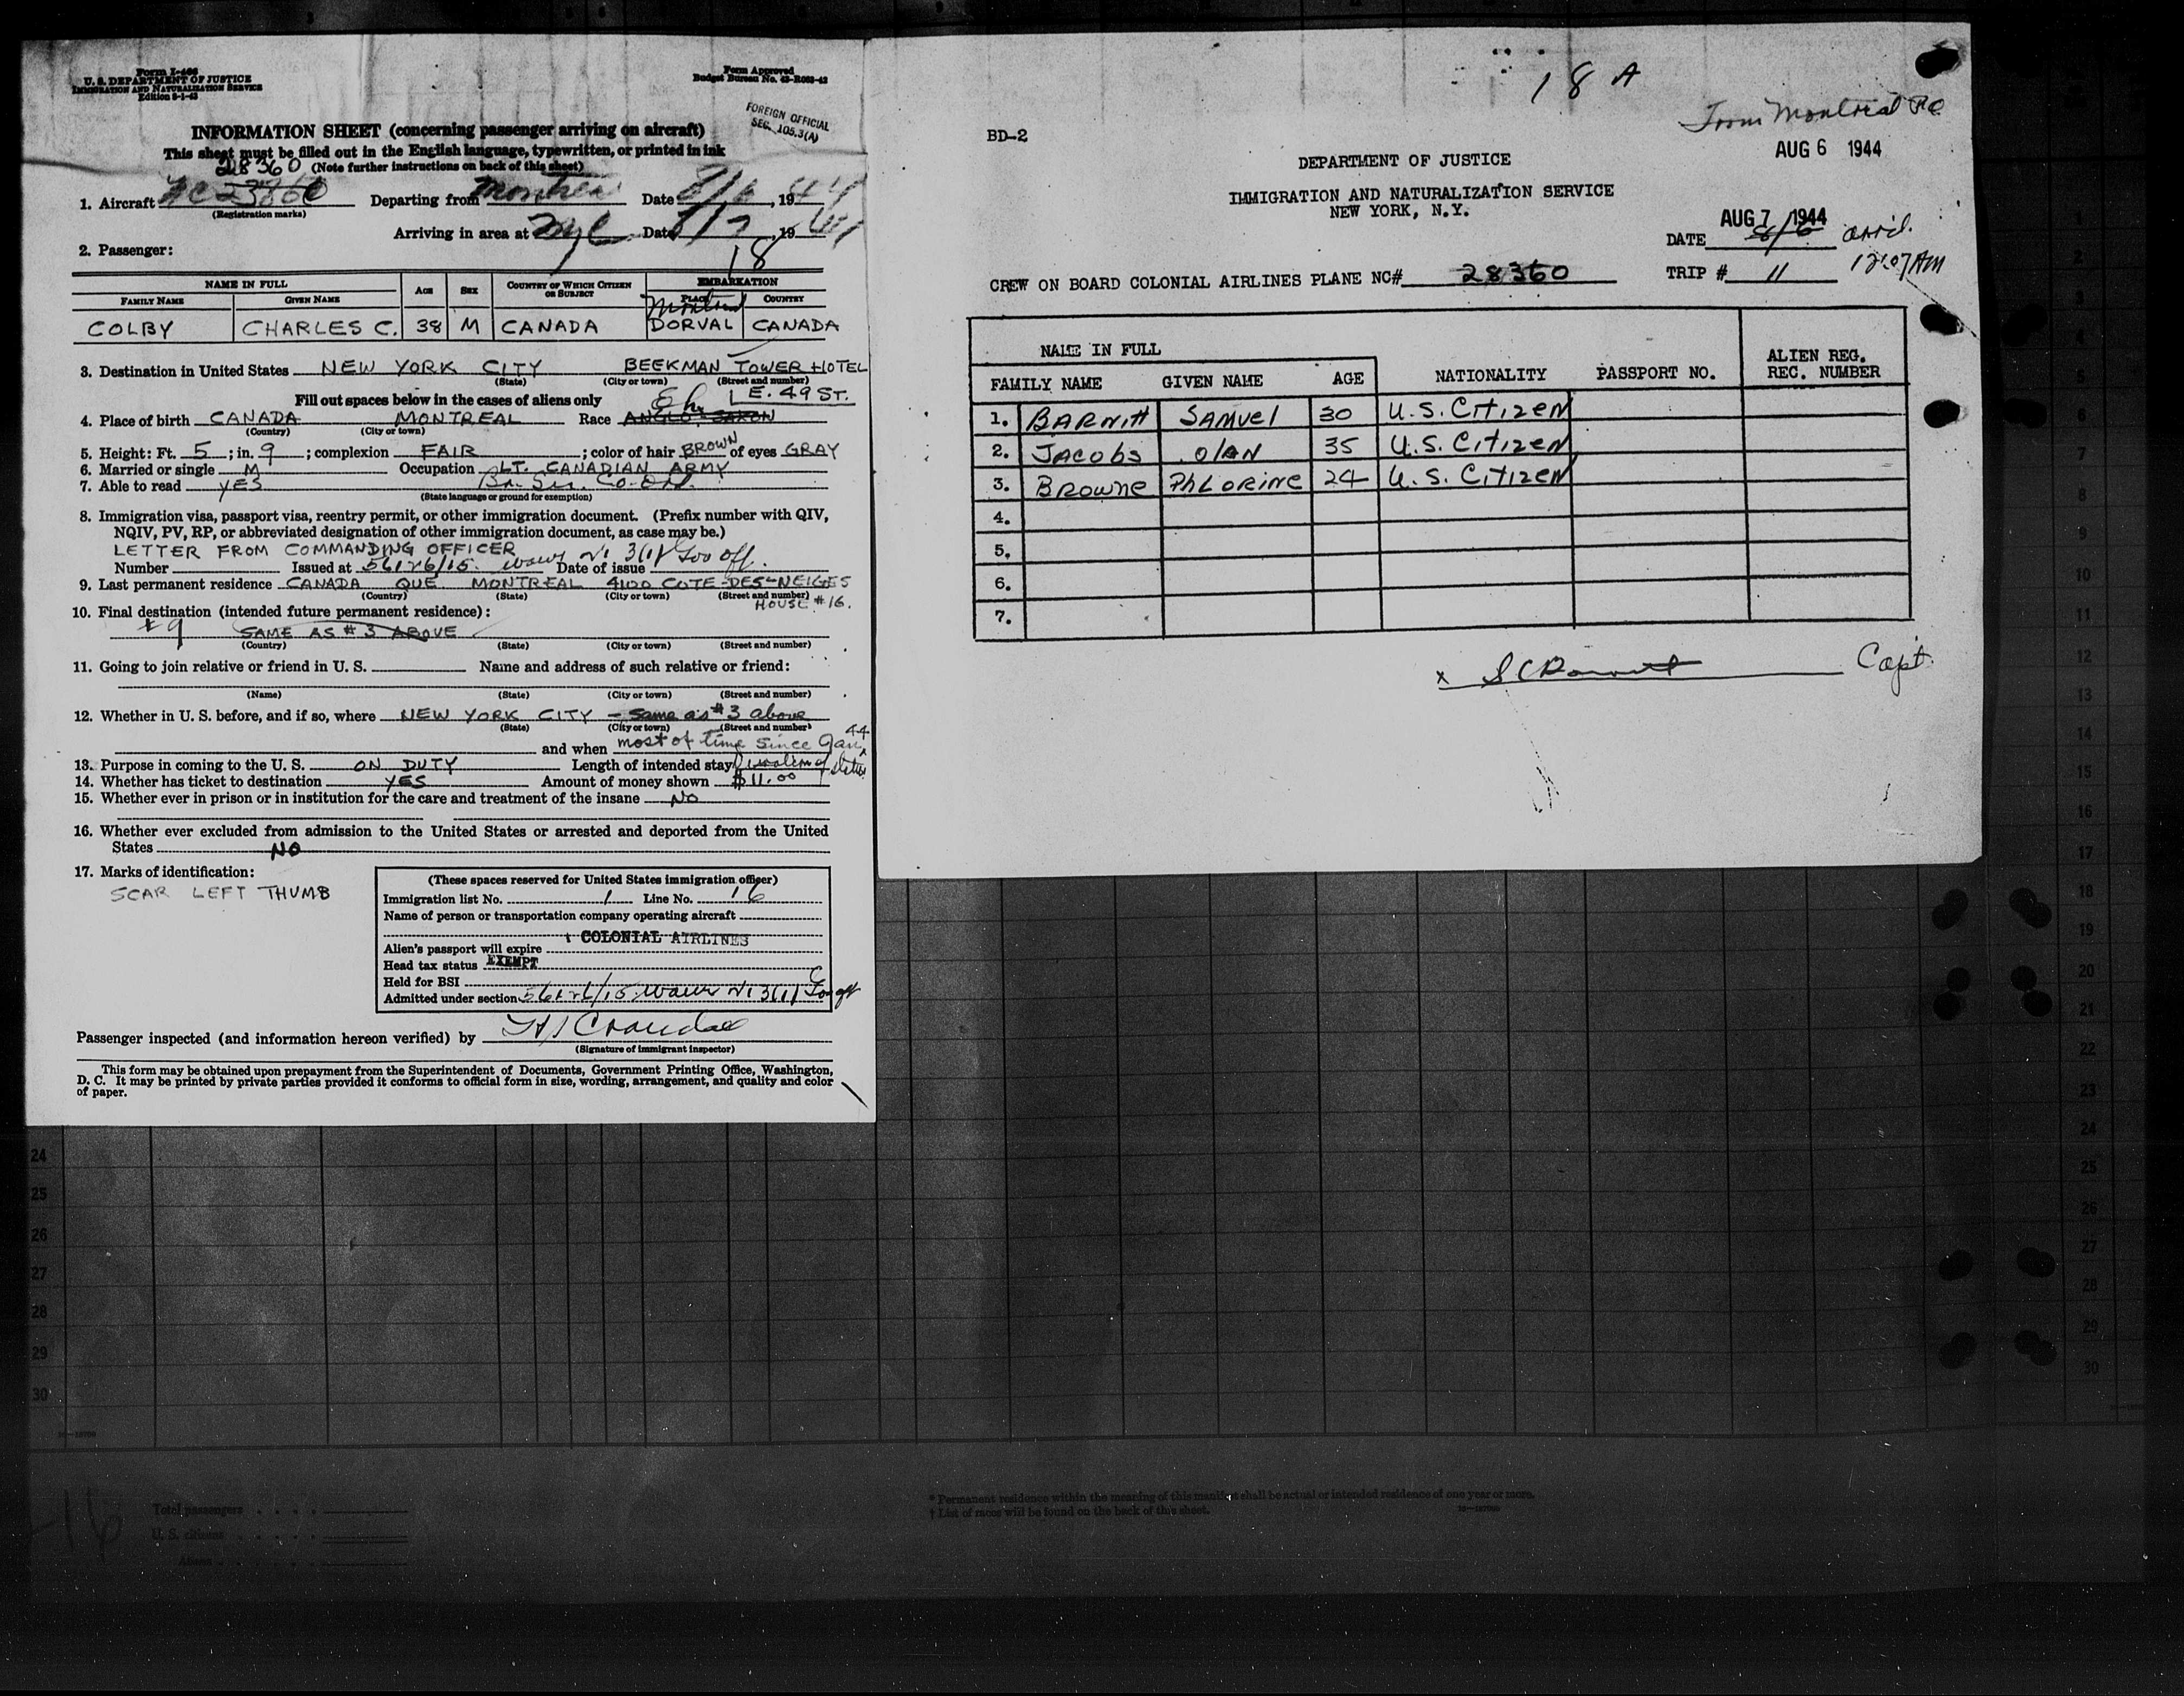 Form I-466
U. S. DEPARTMENT OF JUSTICE
IMMIGRATION AND NATURALIZATION SERVICE
Edition 8-1-43
Form Approved
Budget Bureau No. 43-R083-42
FOREIGN OFFICIAL
SEC. 105.3(A)
INFORMATION SHEET (concerning passenger arriving on aircraft)
This sheet must be filled out in the English language, typewritten, or printed in ink
28360 (Note further instructions on back of this sheet)
1. Aircraft NC 23860 Departing from Montreal Date 8/6, 1944
(Registration marks)
Arriving in area at NYC Date 8/7, 1944
2. Passenger: 18
NAME IN FULL AGE SEX COUNTRY OF WHICH CITIZEN OR SUBJECT EMBARKATION
FAMILY NAME GIVEN NAME PLACE COUNTRY
Montreal
COLBY CHARLES C. 38 M CANADA DORVAL CANADA
3. Destination in United States NEW YORK CITY BEEKMAN TOWER HOTEL
(State) (City or town) (Street and number)
Fill out spaces below in the cases of aliens only E. 49 ST.
4. Place of birth CANADA MONTREAL Race ANGLO-SAXON
(Country) (City or town)
5. Height: Ft. 5 ; in. 9 ; complexion FAIR ; color of hair BROWN of eyes GRAY
6. Married or single M Occupation LT. CANADIAN ARMY
7. Able to read YES
(State language or ground for exemption)
8. Immigration visa, passport visa, reentry permit, or other immigration document. (Prefix number with QIV,
NQIV, PV, RP, or abbreviated designation of other immigration document, as case may be.)
LETTER FROM COMMANDING OFFICER
Number Issued at 56126/15 Date of issue
9. Last permanent residence CANADA QUE MONTREAL 4120 COTE-DES-NEIGES
(Country) (State) (City or town) (Street and number)
HOUSE #16.
10. Final destination (intended future permanent residence):
#9 SAME AS #3 ABOVE
(Country) (State) (City or town) (Street and number)
11. Going to join relative or friend in U. S. Name and address of such relative or friend:
(Name) (State) (City or town) (Street and number)
12. Whether in U. S. before, and if so, where NEW YORK CITY - same as #3 above
(State) (City or town) (Street and number)
and when most of time since Jan 44
13. Purpose in coming to the U. S. ON DUTY Length of intended stay Duration of status
14. Whether has ticket to destination YES Amount of money shown $11.00
15. Whether ever in prison or in institution for the care and treatment of the insane NO
16. Whether ever excluded from admission to the United States or arrested and deported from the United
States NO
17. Marks of identification:
SCAR LEFT THUMB
(These spaces reserved for United States immigration officer)
Immigration list No. 1 Line No. 16
Name of person or transportation company operating aircraft
COLONIAL AIRLINES
Alien's passport will expire
Head tax status EXEMPT
Held for BSI
Admitted under section 56126/15
Passenger inspected (and information hereon verified) by
(Signature of immigrant inspector)
This form may be obtained upon prepayment from the Superintendent of Documents, Government Printing Office, Washington,
D. C. It may be printed by private parties provided it conforms to official form in size, wording, arrangement, and quality and color
of paper.
18 A
From Montreal P.Q.
BD-2
AUG 6 1944
DEPARTMENT OF JUSTICE
IMMIGRATION AND NATURALIZATION SERVICE
NEW YORK, N.Y.
AUG 7 1944
DATE 8/6
CREW ON BOARD COLONIAL AIRLINES PLANE NC# 28360 TRIP # 11 12:07 AM
NAME IN FULL
FAMILY NAME GIVEN NAME AGE NATIONALITY PASSPORT NO. ALIEN REG. REC. NUMBER
1. BARNITT SAMUEL 30 U.S. CITIZEN
2. JACOBS OLAN 35 U.S. CITIZEN
3. BROWNE PHLORINE 24 U.S. CITIZEN
4.
5.
6.
7.
x Capt.
24
25
26
27
28
29
30
1
2
3
4
5
6
7
8
9
10
11
12
13
14
15
16
17
18
19
20
21
22
23
24
25
26
27
28
29
30
Total passengers
U. S. citizens
Aliens
* Permanent residence within the meaning of this manifest shall be actual or intended residence of one year or more.
† List of races will be found on the back of this sheet.